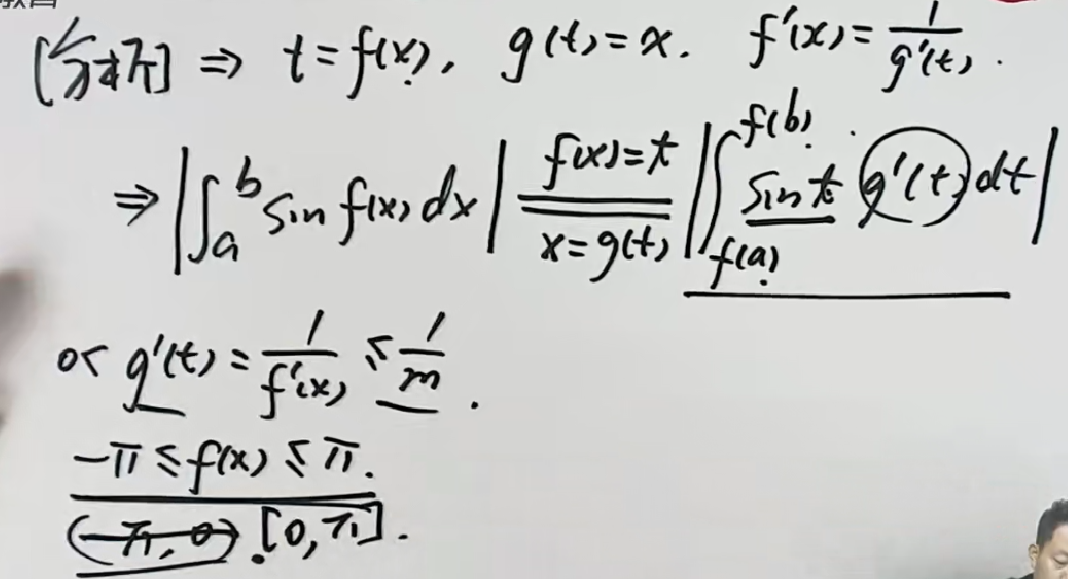 [分析] ⇒ t=f(x), g(t)=x. f'(x)=1/g'(t).
⇒ |∫_a^b sin f(x) dx| \xlongequal[x=g(t)]{f(x)=t} |∫_{f(a)}^{f(b)} sin t g'(t) dt|
0< g'(t)=1/f'(x) ≤ 1/m.
-π ≤ f(x) ≤ π.
(-π, 0) . [0, π].